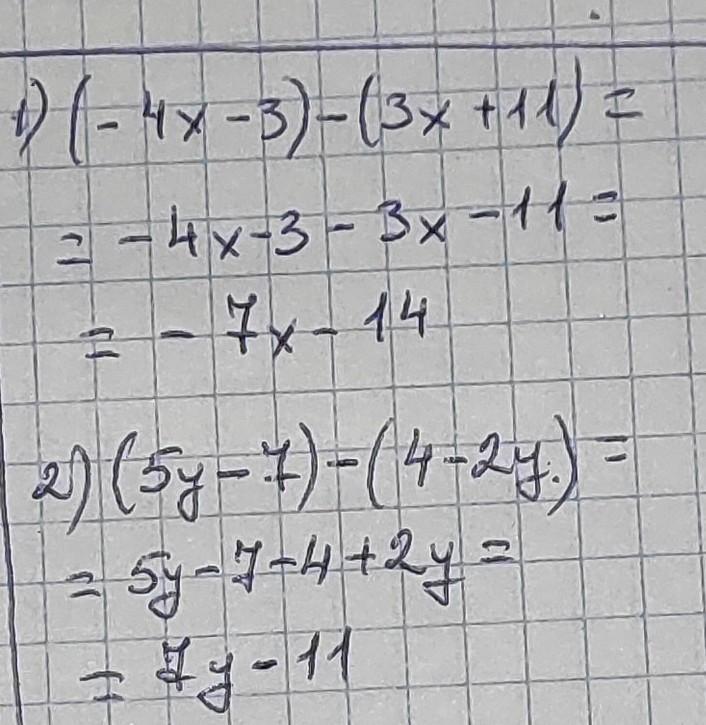 1) (-4x-3)-(3x+11)=
= -4x-3-3x-11=
= -7x-14
2) (5y-7)-(4-2y.)=
= 5y-7-4+2y=
= 7y-11